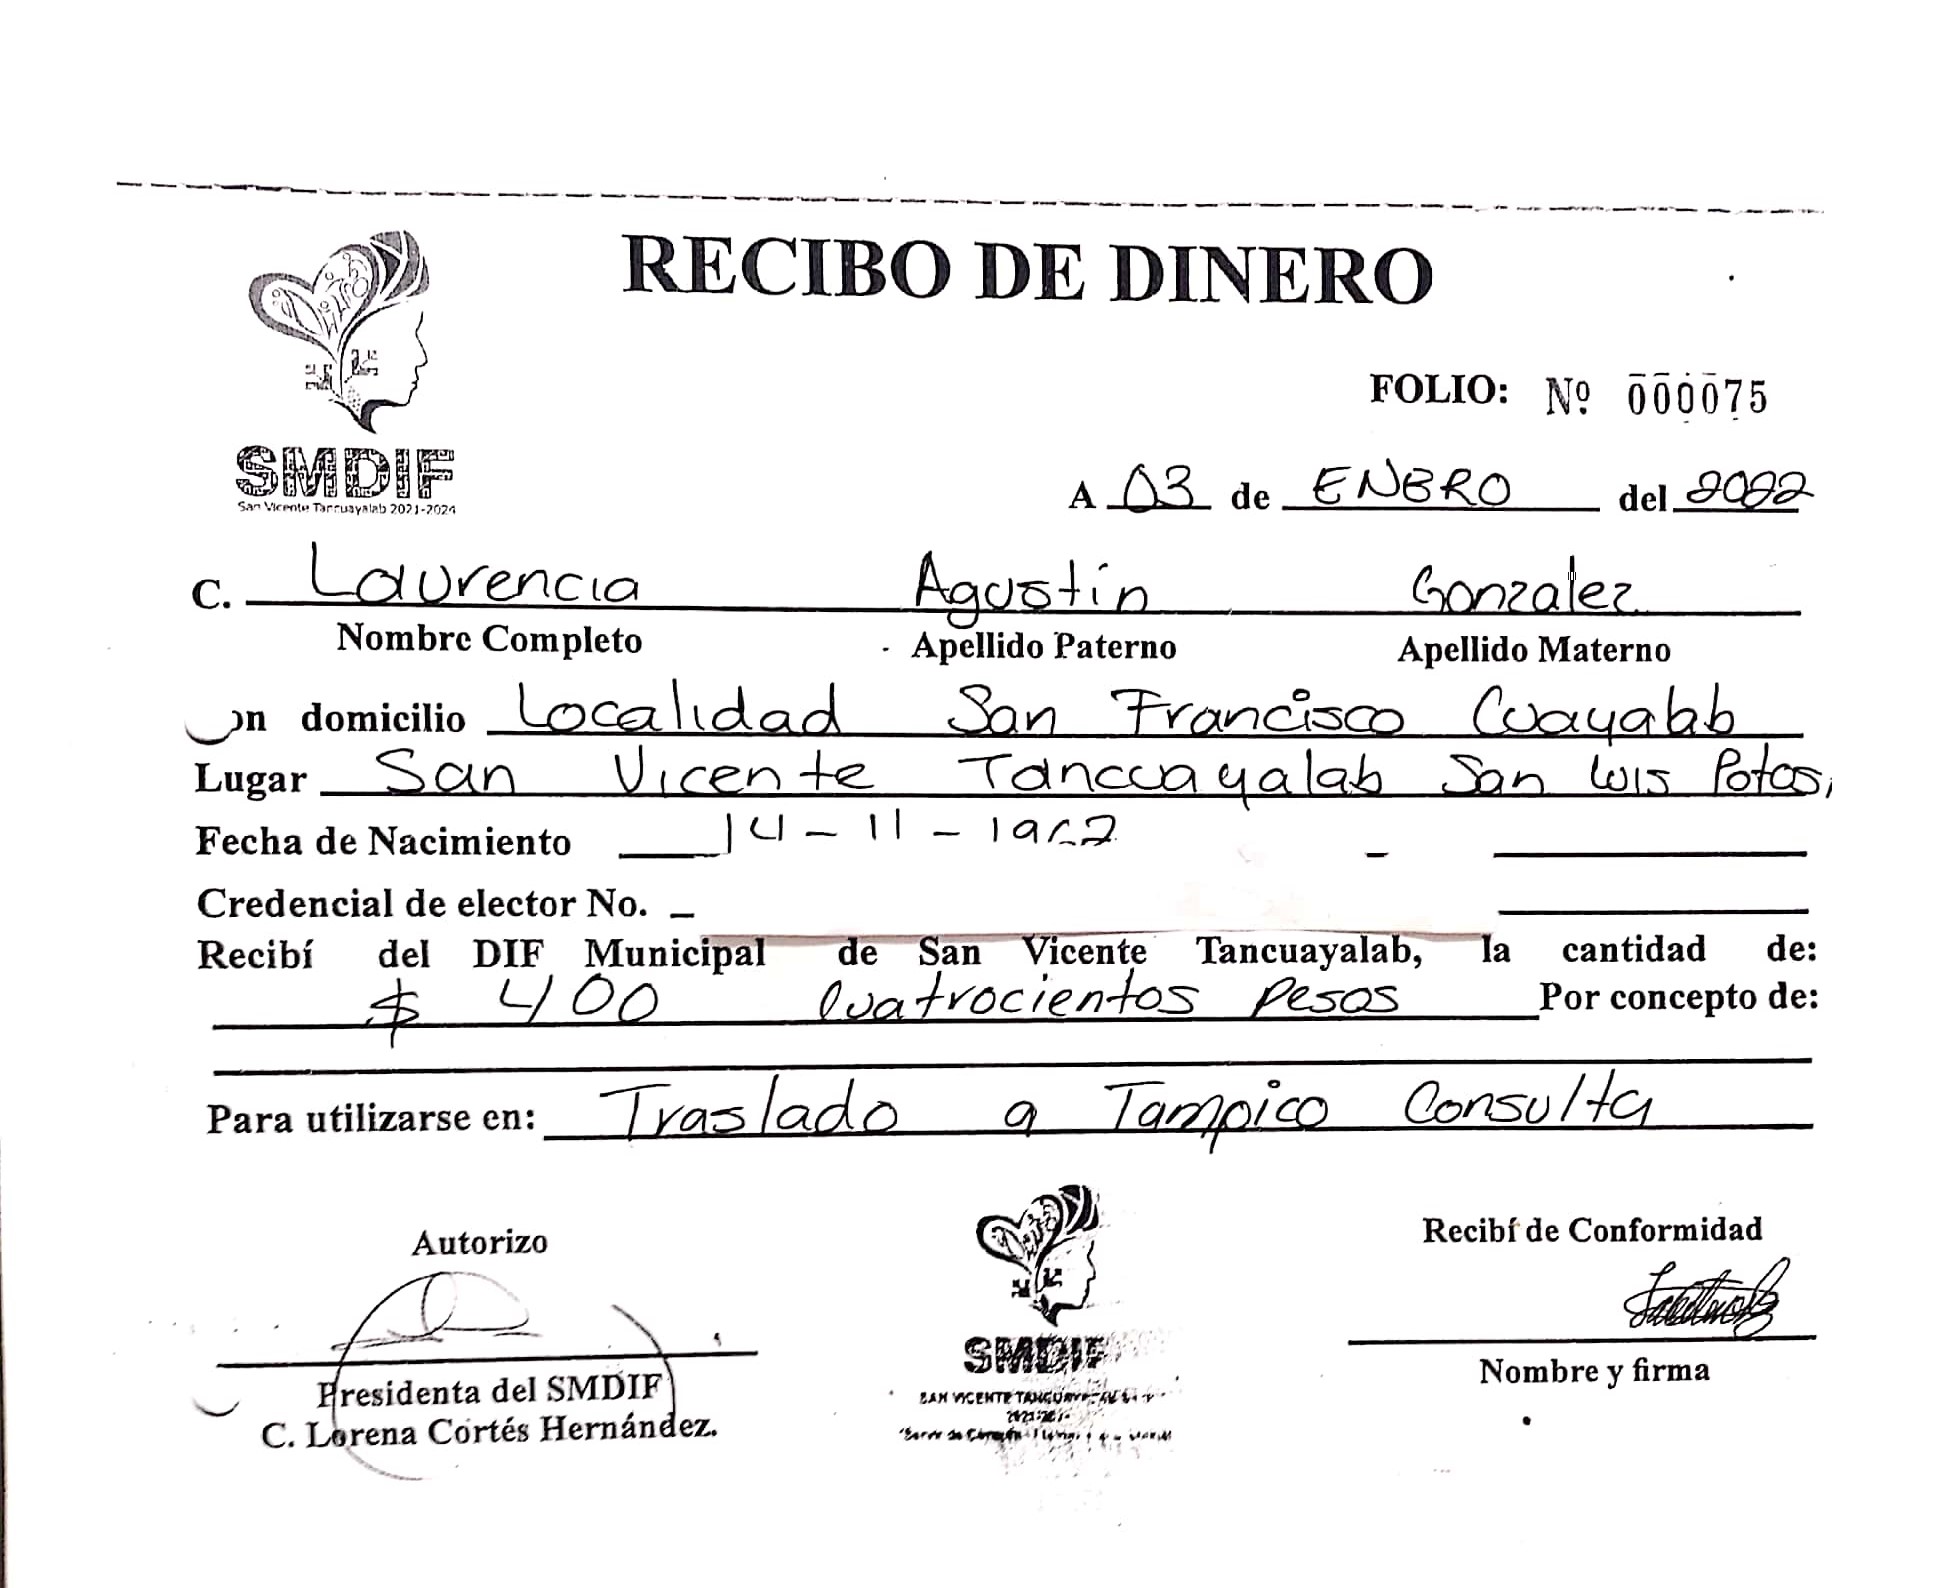 RECIBO DE DINERO
FOLIO: Nº 000075
SMDIF
San Vicente Tancuayalab 2021-2024
A 03 de ENERO del 2022
C. Laurencia Agustin Gonzalez
Nombre Completo Apellido Paterno Apellido Materno
on domicilio Localidad San Francisco Cuayalab
Lugar San Vicente Tancuayalab San Luis Potosi
Fecha de Nacimiento 14-11-
Credencial de elector No.
Recibí del DIF Municipal de San Vicente Tancuayalab, la cantidad de:
$ 400 Cuatrocientos Pesos Por concepto de:
Para utilizarse en: Traslado a Tampico Consulta
Autorizo
Recibí de Conformidad
SMDIF
SAN VICENTE
Presidenta del SMDIF
C. Lorena Cortés Hernández.
Nombre y firma